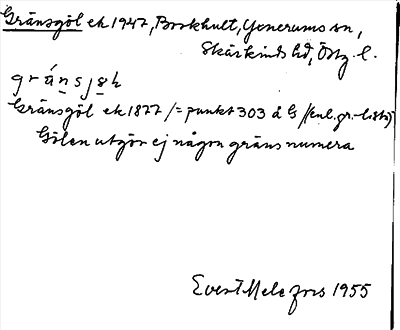 Gränsgöl ek 1947, Borkhult, Yxnerums sn,
Skärkinds hd, Östg. l.
gränsjsh
Gränsgöl ek 1877 /= punkt 303 å G /enl. gr.-lista)
Gölen utgör ej någon gräns numera
Evert Melefors 1955